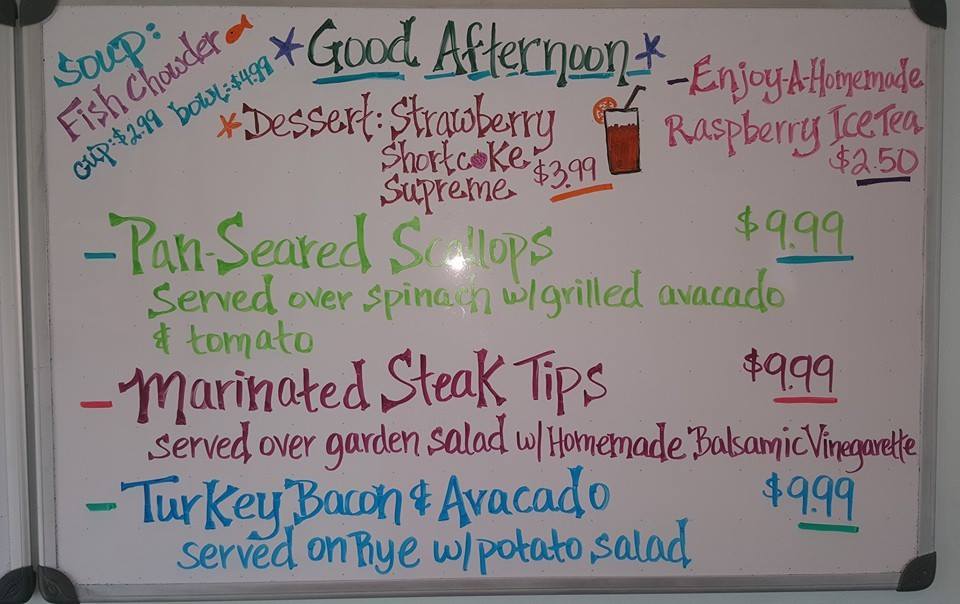 Soup:
Fish Chowder
cup:$2.99 bowl:$4.99
Good Afternoon
Dessert: Strawberry
Shortcake
Supreme $3.99
-Enjoy-A-Homemade
Raspberry Ice Tea
$2.50
-Pan-Seared Scallops $9.99
Served over spinach w/grilled avacado
& tomato
-Marinated Steak Tips $9.99
served over garden salad w/Homemade Balsamic Vinegarette
-Turkey Bacon & Avacado $9.99
served on Rye w/potato salad